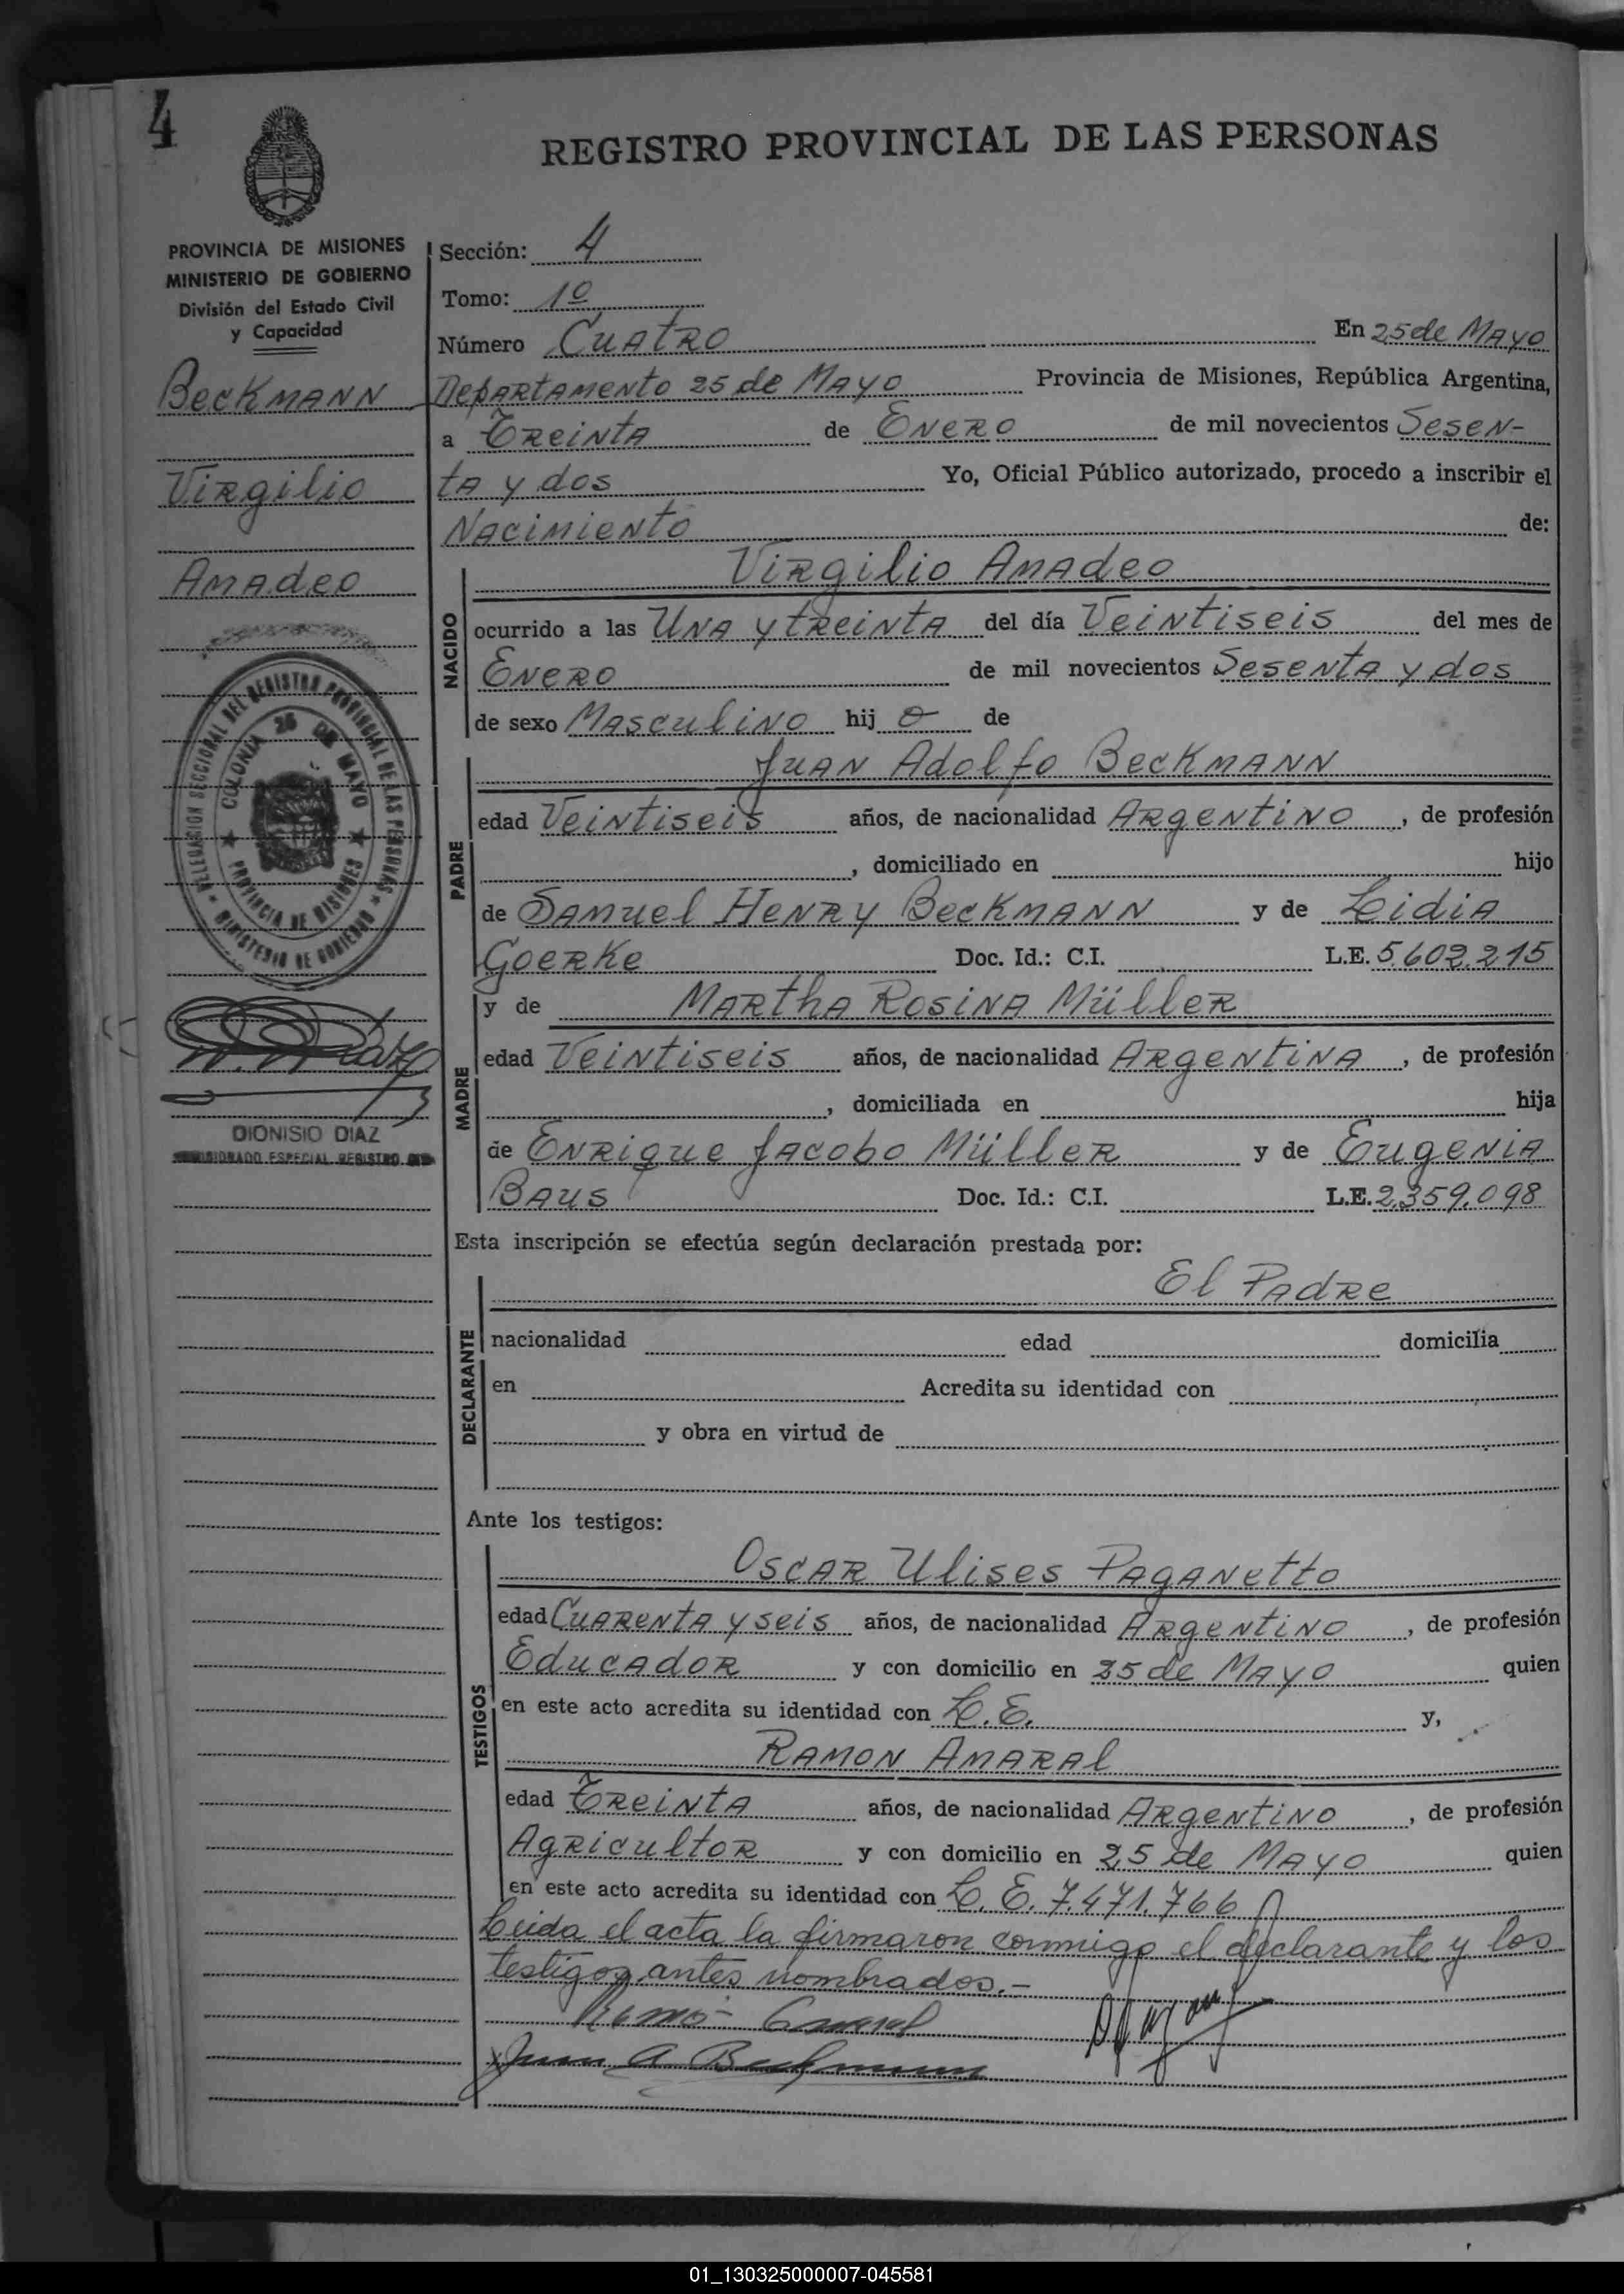 4
REGISTRO PROVINCIAL DE LAS PERSONAS
PROVINCIA DE MISIONES
MINISTERIO DE GOBIERNO
División del Estado Civil
y Capacidad
Beckmann
Virgilio
Amadeo
DELEGACION SECCIONAL DEL REGISTRO PROVINCIAL DE LAS PERSONAS
MINISTERIO DE GOBIERNO
COLONIA 25 DE MAYO
PROVINCIA DE MISIONES
DIONISIO DIAZ
ESPECIAL REGISTRO
Sección: 4
Tomo: 1º
Número Cuatro En 25 de Mayo
Departamento 25 de Mayo Provincia de Misiones, República Argentina,
a Treinta de Enero de mil novecientos Sesen-
ta y dos Yo, Oficial Público autorizado, procedo a inscribir el
Nacimiento de:
NACIDO
Virgilio Amadeo
ocurrido a las Una y treinta del día Veintiseis del mes de
Enero de mil novecientos Sesenta y dos
de sexo Masculino hijo de
PADRE
Juan Adolfo Beckmann
edad Veintiseis años, de nacionalidad Argentino, de profesión
, domiciliado en hijo
de Samuel Henry Beckmann y de Lidia
Goerke Doc. Id.: C.I. L.E. 5.602.215
MADRE
y de Martha Rosina Müller
edad Veintiseis años, de nacionalidad Argentina, de profesión
, domiciliada en hija
de Enrique Jacobo Müller y de Eugenia
Baus Doc. Id.: C.I. L.E. 2.359.098
Esta inscripción se efectúa según declaración prestada por:
DECLARANTE
El Padre
nacionalidad edad domicilia
en Acredita su identidad con
y obra en virtud de
Ante los testigos:
TESTIGOS
Oscar Ulises Paganetto
edad Cuarenta y seis años, de nacionalidad Argentino, de profesión
Educador y con domicilio en 25 de Mayo quien
en este acto acredita su identidad con L.E. y,
Ramon Amaral
edad Treinta años, de nacionalidad Argentino, de profesión
Agricultor y con domicilio en 25 de Mayo quien
en este acto acredita su identidad con L.E. 7.471.766
Leida el acta la firmaron conmigo el declarante y los
testigos antes nombrados.-
Juan A Beckmann
01_130325000007-045581